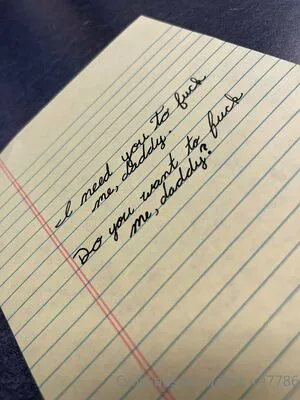 I need you to fuck
me, daddy.
Do you want to fuck
me, daddy?